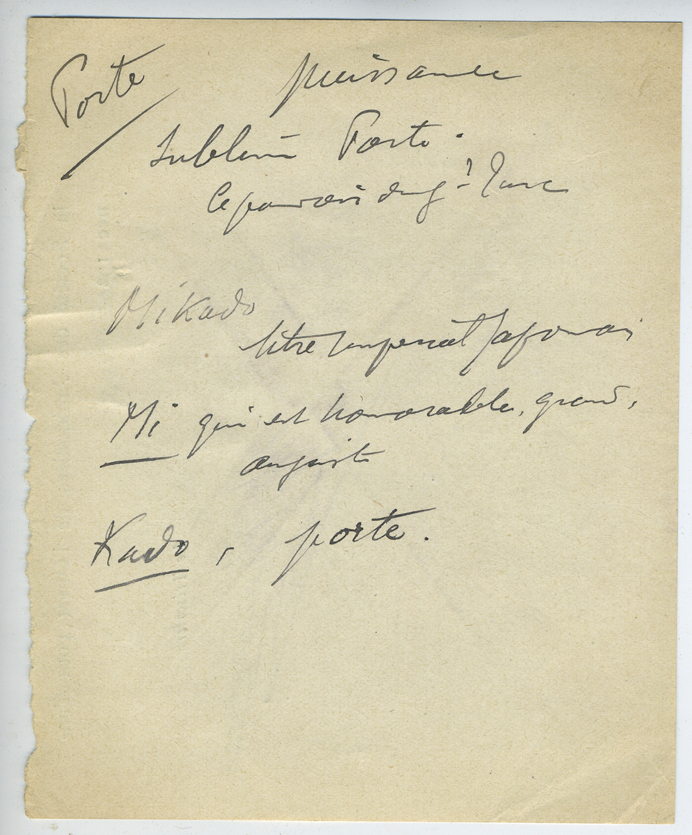 Porte
puissance
Sublime Porte.
le pouvoir du Turc
Mikado
titre impérial Japonais
Mi qui est honorable, grand,
auguste
Kado, porte.